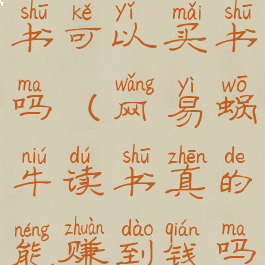 shū kě yǐ mǎi shū
书可以买书
ma wǎng yì wō
吗(网易蜗
niú dú shū zhēn de
牛读书真的
néng zhuàn dào qián ma
能赚到钱吗